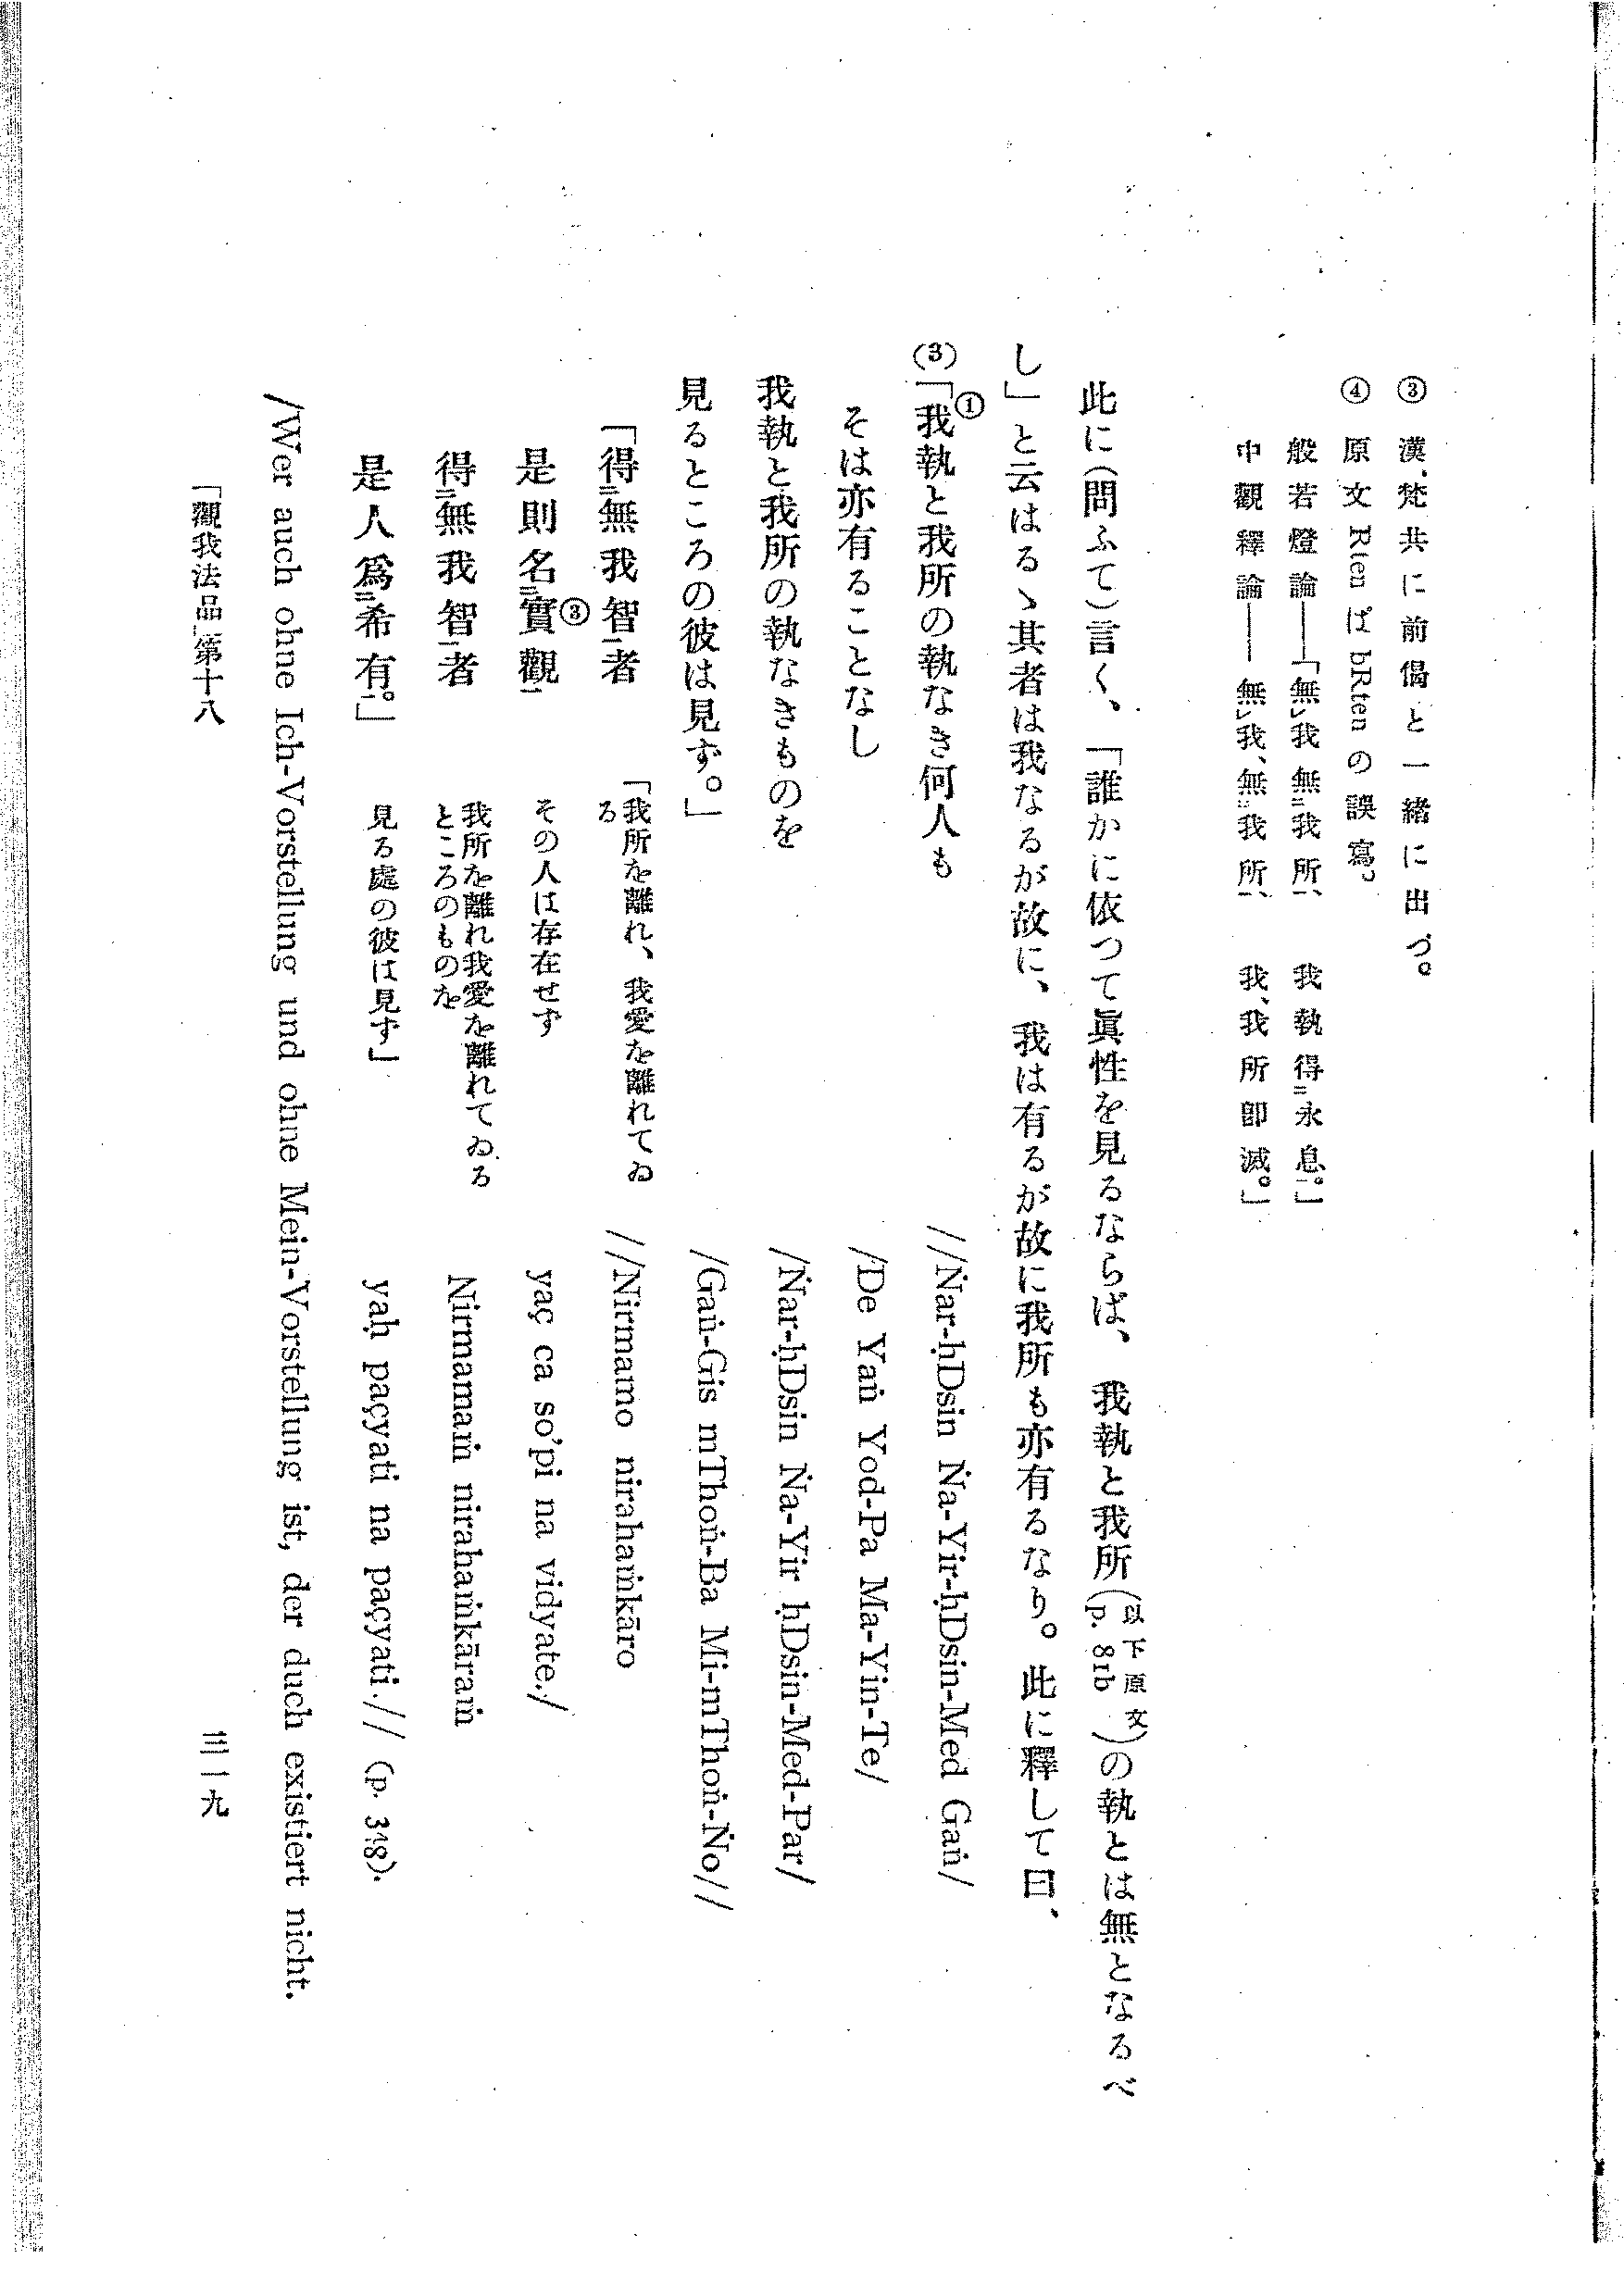 ③ 漢、梵共に前偈と一緒に出づ。
④ 原文 Rten は bRten の誤寫。
般若燈論――「無㆑我無㆓我所㆒、 我執得㆓永息㆒。」
中觀釋論―― 無㆑我、無㆓我所㆒、 我、我所卽滅。」
此に(問ふて)言く、「誰かに依つて眞性を見るならば、我執と我所(以下原文 p. 81b)の執とは無となるべ
し」と云はるゝ其者は我なるが故に、我は有るが故に我所も亦有るなり。此に釋して曰、
(3)「①我執と我所の執なき何人も
//Ṅar-ḥDsin Ṅa-Yir-ḥDsin-Med Gaṅ/
そは亦有ることなし
/De Yaṅ Yod-Pa Ma-Yin-Te/
我執と我所の執なきものを
/Ṅar-ḥDsin Ṅa-Yir ḥDsin-Med-Par/
見るところの彼は見ず。」
/Gaṅ-Gis mThoṅ-Ba Mi-mThoṅ-Ṅo//
「得㆓無我智㆒者
「我所を離れ、我愛を離れてゐる
//Nirmamo nirahaṁkāro
是則名㆓實③觀㆒
その人は存在せず
yaç ca so'pi na vidyate./
得㆓無我智㆒者
我所を離れ我愛を離れてゐるところのものを
Nirmamaṁ nirahaṁkāraṁ
是人爲㆓希有㆒。」
見る處の彼は見ず」
yaḥ paçyati na paçyati.// (p. 348).
/Wer auch ohne Ich-Vorstellung und ohne Mein-Vorstellung ist, der duch existiert nicht.
「觀我法品」第十八
三一九